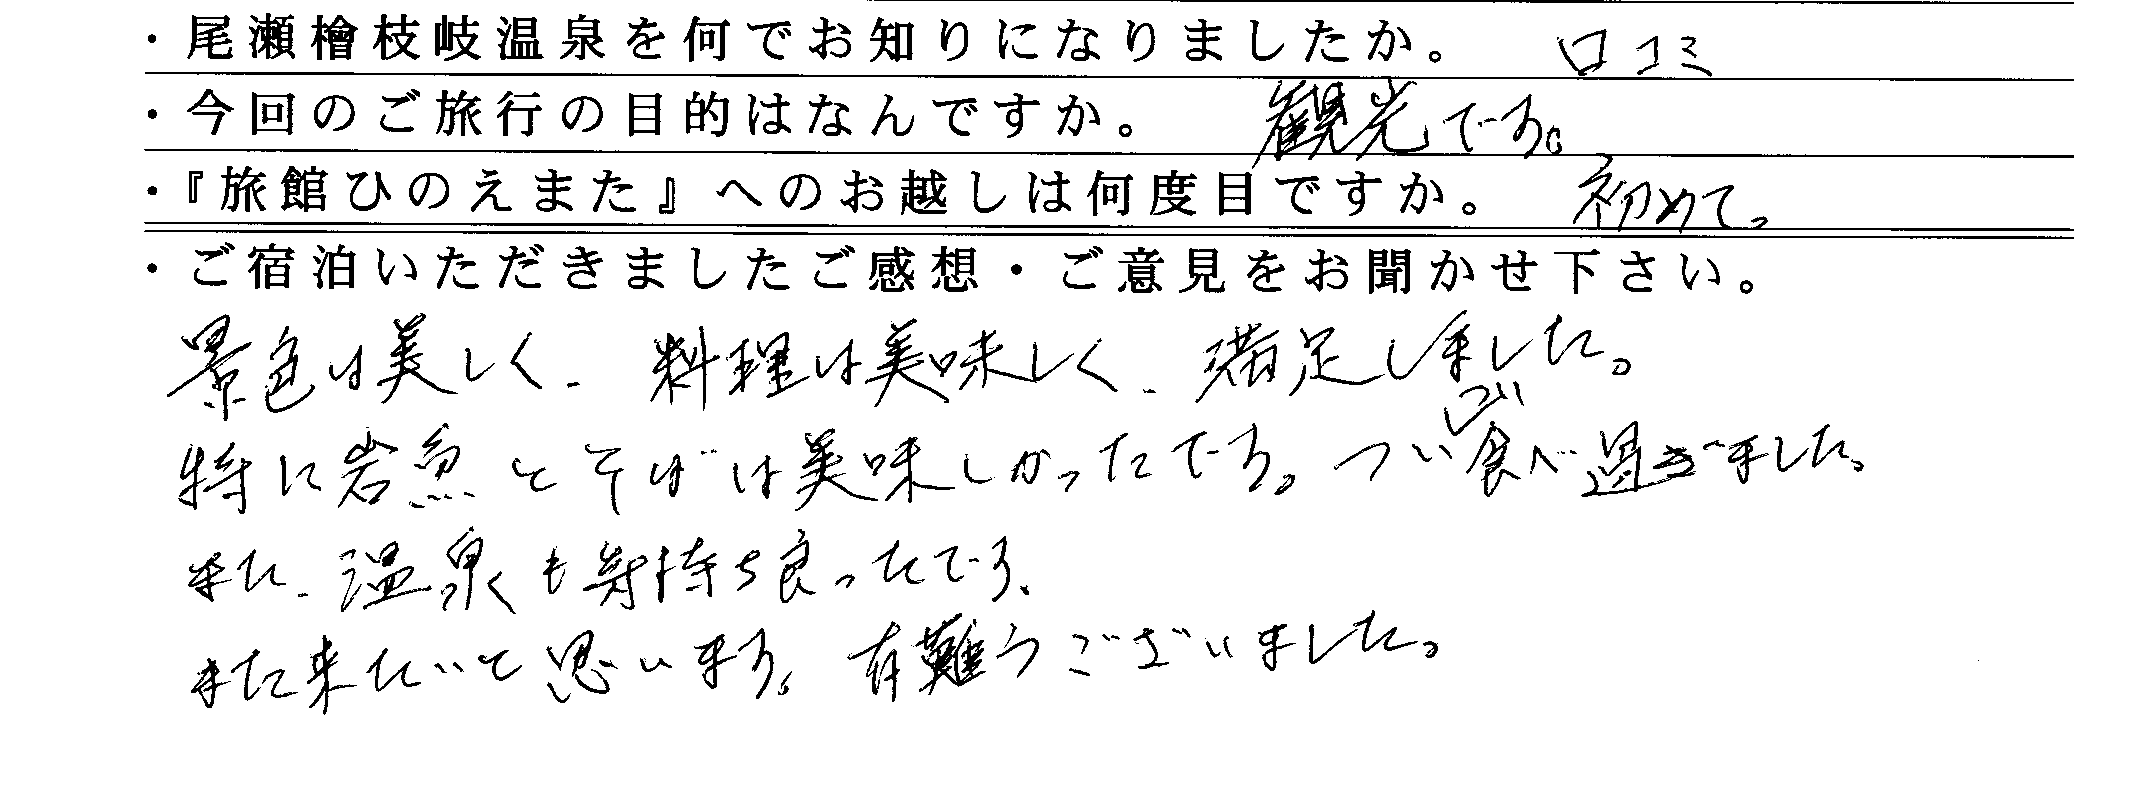 ・尾瀬檜枝岐温泉を何でお知りになりましたか。 口コミ
・今回のご旅行の目的はなんですか。 観光です。
・『旅館ひのえまた』へのお越しは何度目ですか。 初めて。
・ご宿泊いただきましたご感想・ご意見をお聞かせ下さい。
景色は美しく、料理は美味しく、満足しました。
特に岩魚とそばは美味しかったです。ついつい食べ過ぎました。
また、温泉も気持ち良ったです。
また来たいと思います。有難うございました。